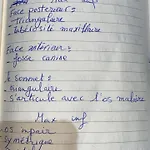 Max inf
Face posterieure :
- Triangulaire
- tubérosité maxillaire
Face antérieure :
- fosse canine
le sommet :
- triangulaire
- S'articule avec l'os malaire
Max inf
- os impair
- symétrique